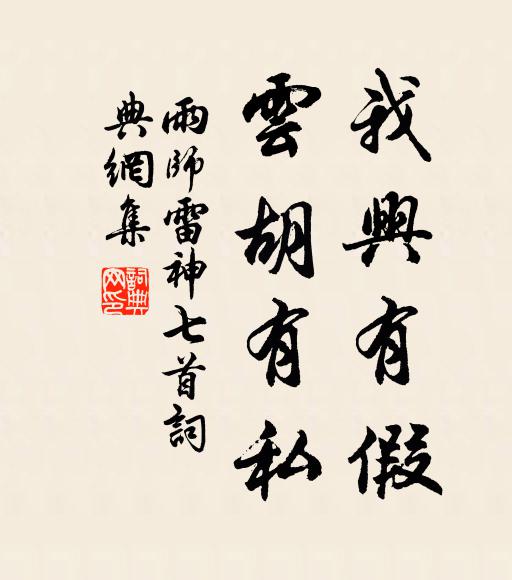 我興有假
雲胡有私
雨師雷神七首詞
典網集
詞典網印